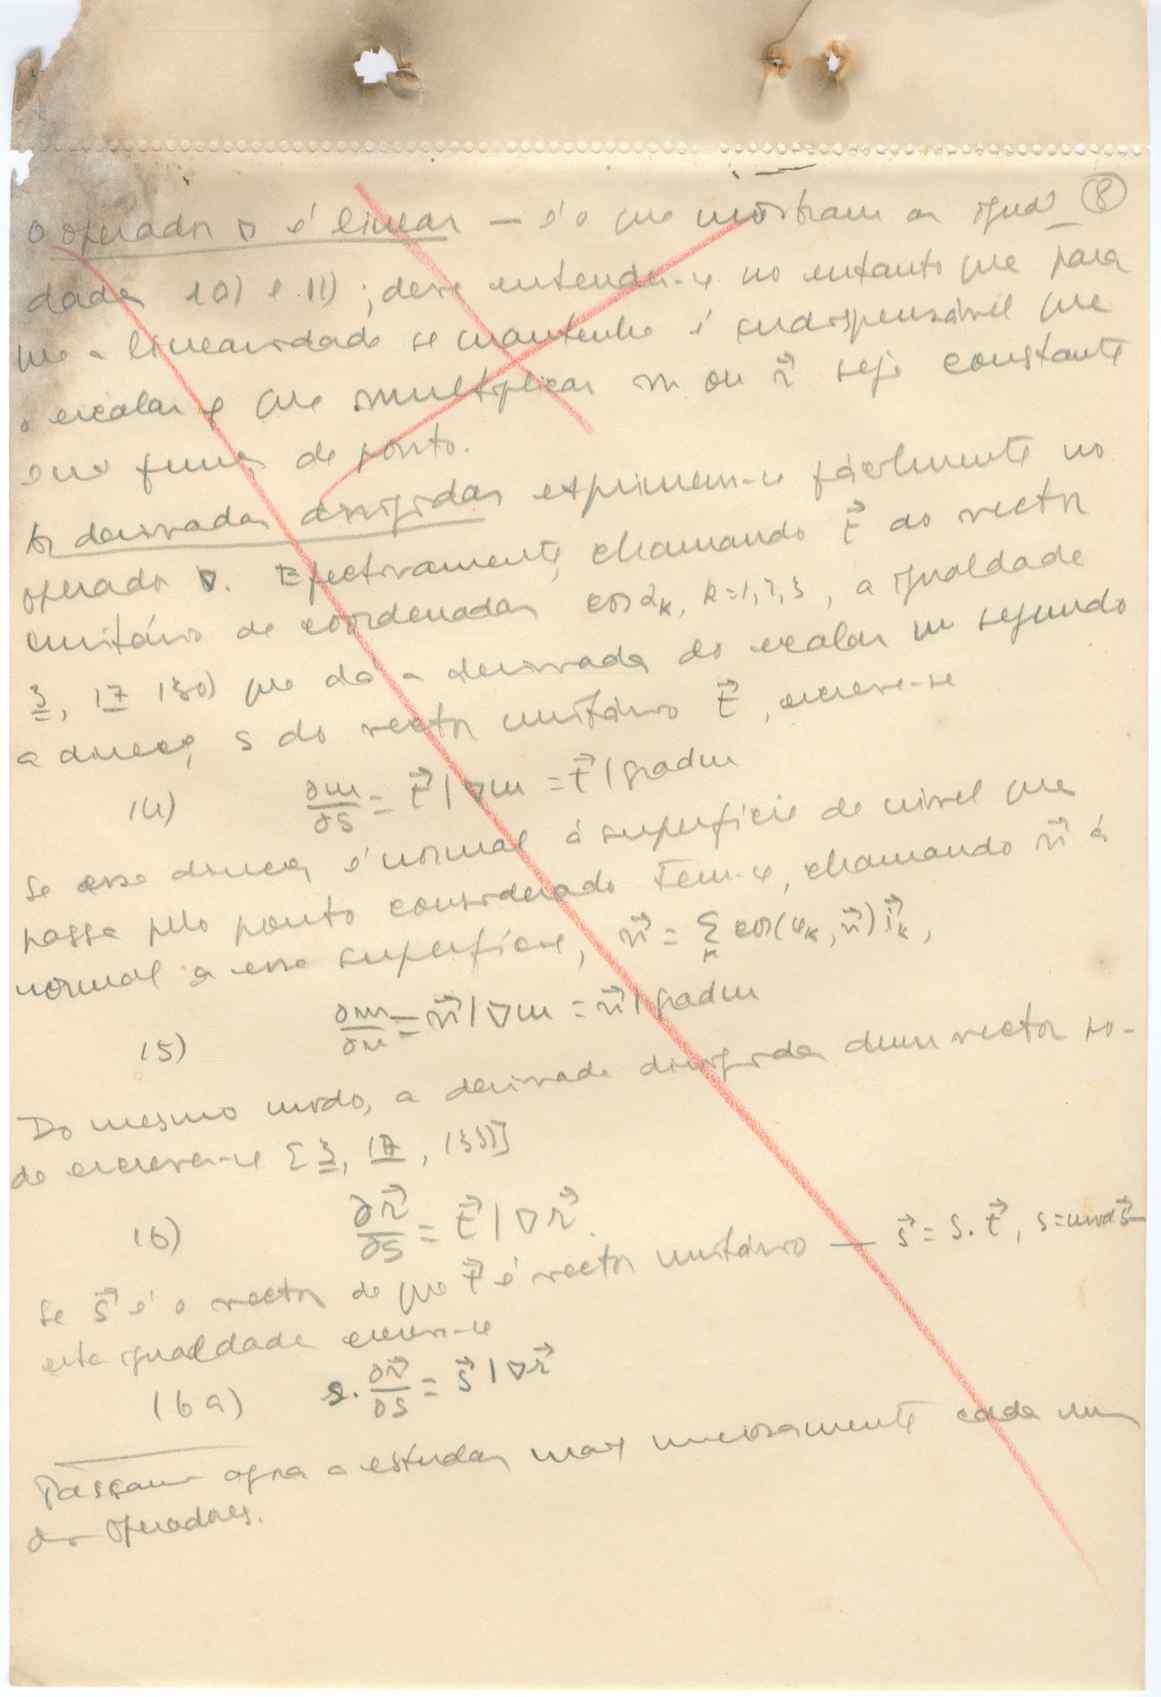 8
O operador ∇ é linear — é o que mostram as igual-
dades 10) e 11); deve entender-se no entanto que para
que a linearidade se mantenha é indispensável que
o escalar φ que multiplicar m ou r⃗ seja constante
e não função de ponto.
As derivadas dirigidas exprimem-se fàcilmente no
operador ∇. Efectivamente, chamando t⃗ ao vector
unitário de coordenadas cos α_k, k=1,2,3, a igualdade
3, 17 130) que dá a derivada do escalar m segundo
a direcção s do vector unitário t⃗, escreve-se
14) ∂m/∂s = t⃗ | ∇m = t⃗ | grad m
Se essa direcção é normal à superfície de nível que
passa pelo ponto considerado tem-se, chamando n⃗ à
normal a essa superfície, n⃗ = Σ_k cos(u_k, n⃗) i⃗_k,
15) ∂m/∂n = n⃗ | ∇m = n⃗ | grad m
Do mesmo modo, a derivada dirigida dum vector po-
de escrever-se [3, 17, 133)]
16) ∂r⃗/∂s = t⃗ | ∇r⃗.
Se s⃗ é o vector de que t⃗ é vector unitário — s⃗ = s. t⃗, s = mod s⃗ —
esta igualdade escreve-se
16a) s. ∂r⃗/∂s = s⃗ | ∇r⃗
Passamos agora a estudar mais cada um
dos operadores.